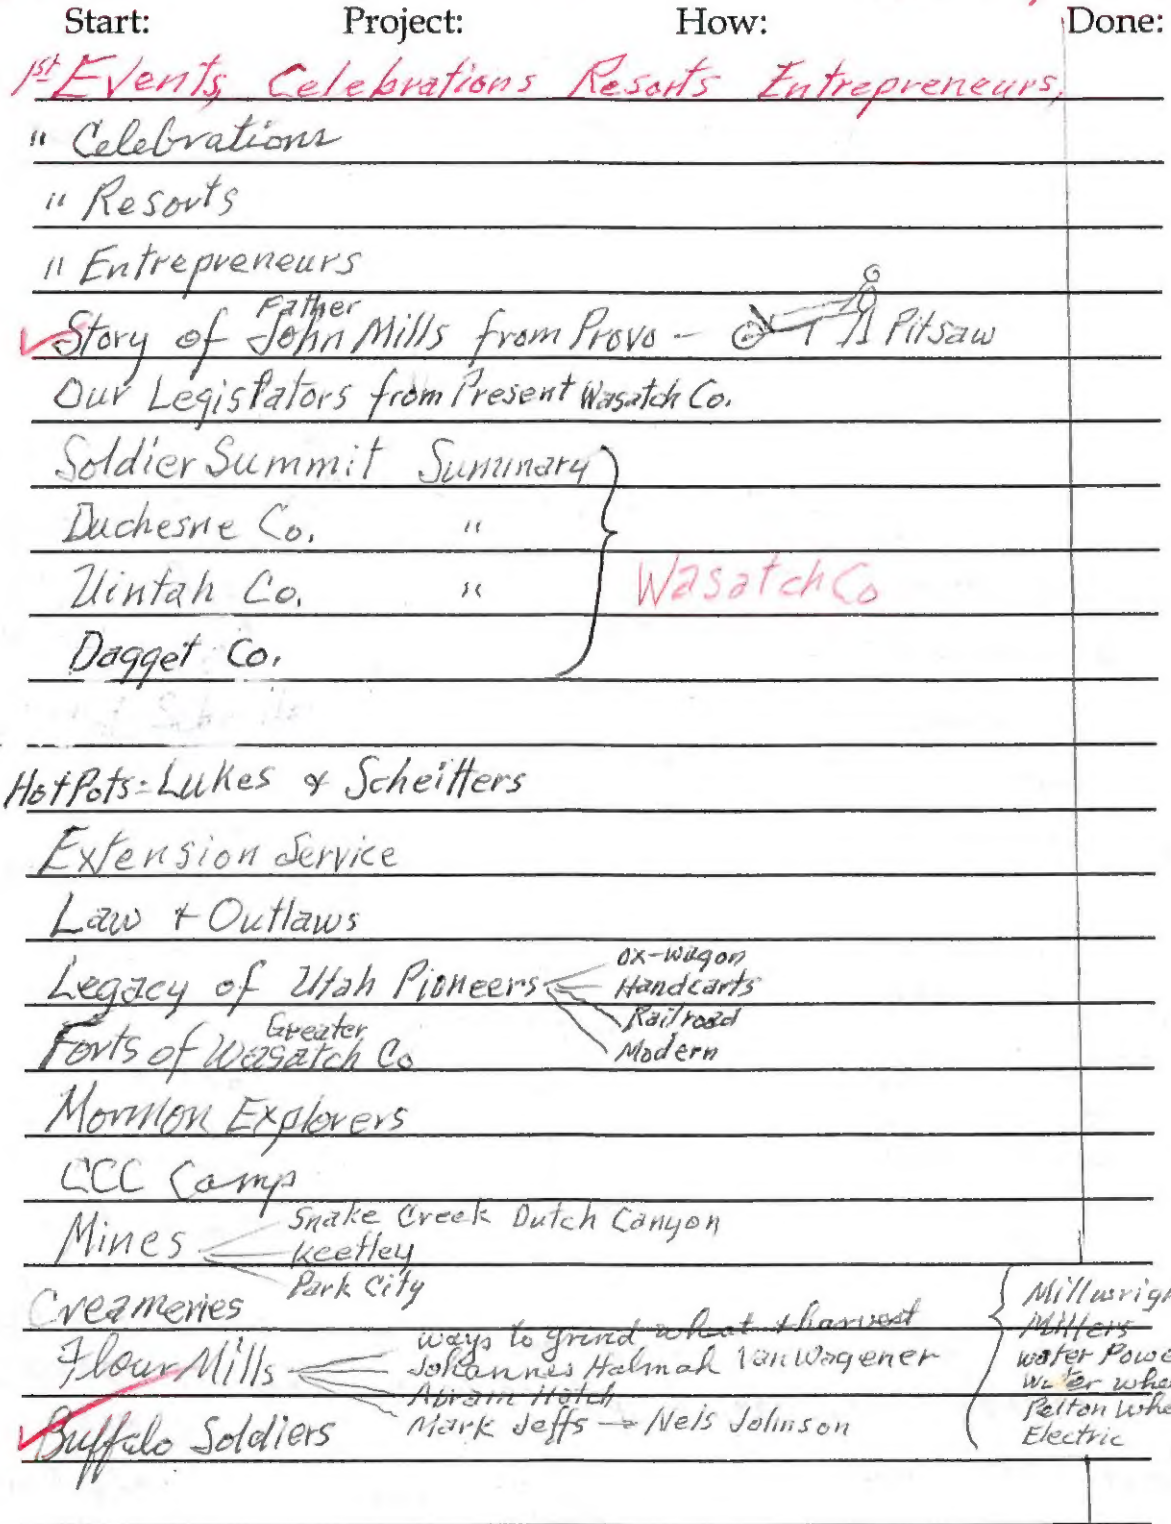 Start: Project: How: Done:
1st Events, Celebrations Resorts Entrepreneurs,
" Celebrations
" Resorts
" Entrepreneurs
Father
Story of John Mills from Provo - Pitsaw
Our Legislators from Present Wasatch Co.
Soldier Summit Summary
Duchesne Co. "
Uintah Co. " Wasatch Co
Dagget Co.
Hot Pots = Lukes & Scheitters
Extension Service
Law + Outlaws
Legacy of Utah Pioneers
ox-wagon
Handcarts
Railroad
Modern
Greater
Forts of Wasatch Co
Mormon Explorers
CCC Camp
Mines
Snake Creek Dutch Canyon
Keetley
Park City
Creameries
Flour Mills
ways to grind wheat + harvest
Johannes Halmah Van Wagener
Abram Hatch
Mark Jeffs → Nels Johnson
Millwrigh
Millers
water Powe
Water whe
Pelton Whe
Electric
Buffalo Soldiers